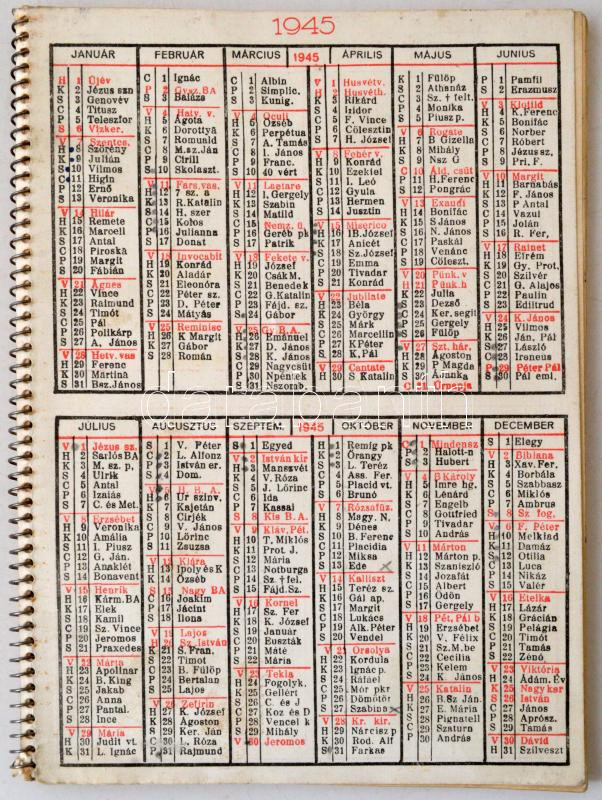 1945
JANUÁR
H 1 Újév
K 2 Jézus szn
S 3 Genovév
C 4 Titusz
P 5 Teleszfor
S 6 Vizker.
V 7 Szentcs.
H 8 Szörény
K 9 Julián
S 10 Vilmos
C 11 Higin
P 12 Ernő
S 13 Veronika
V 14 Hilár
H 15 Remete
K 16 Marcell
S 17 Antal
C 18 Piroska
P 19 Margit
S 20 Fábián
V 21 Ágnes
H 22 Vince
K 23 Raimund
S 24 Timót
C 25 Pál
P 26 Polikárp
S 27 A. János
V 28 Hetv. vas
H 29 Ferenc
K 30 Martina
S 31 Bsz. János
FEBRUÁR
C 1 Ignác
P 2 Gysz. BA
S 3 Balázs
V 4 Hatv. v.
H 5 Ágota
K 6 Dorottya
S 7 Romuald
C 8 M.sz.Ján
P 9 Ciril
S 10 Skolaszt.
V 11 Fars. vas.
H 12 7 sz. a
K 13 R.Katalin
S 14 H. szer
C 15 Kolos
P 16 Julianna
S 17 Donat
V 18 Invocabit
H 19 Konrád
K 20 Aladár
S 21 Eleonóra
C 22 Péter sz.
P 23 D. Péter
S 24 Mátyás
V 25 Reminisc
H 26 K Margit
K 27 Gábor
S 28 Román
MÁRCIUS
C 1 Albin
P 2 Simplic.
S 3 Kunig.
V 4 Oculi
H 5 Özséb
K 6 Perpétua
S 7 A. Tamás
C 8 I. János
P 9 Franc.
S 10 40 vért
V 11 Laetare
H 12 I. Gergely
K 13 Szabin
S 14 Matild
C 15 Nemz. ü.
P 16 Geréb pk
S 17 Patrik
V 18 Fekete v.
H 19 József
K 20 Csák M.
S 21 Benedek
C 22 G.Katalin
P 23 Fájd. sz.
S 24 Gábor
V 25 Gy B.A
H 26 Emánuel
K 27 D. János
S 28 K. János
C 29 Nagycsüt
P 30 Npéntek
S 31 Nszomb.
1945
ÁPRILIS
V 1 Husvétv.
H 2 Husvéth.
K 3 Rikárd
S 4 Izidor
C 5 F. Vince
P 6 Cölesztin
S 7 H. József
V 8 Fehér v.
H 9 Konrád
K 10 Ezekiel
S 11 I. Leó
C 12 Gyula
P 13 Hermen
S 14 Jusztin
V 15 Misericο
H 16 IB.József
K 17 Anicét
S 18 Sz.József
C 19 Emma
P 20 Tivadar
S 21 Konrád
V 22 Jubilate
H 23 Béla
K 24 György
S 25 Márk
C 26 Marcellin
P 27 K Péter
S 28 K. Pál
V 29 Cantate
H 30 S Katalin
MÁJUS
K 1 Fülöp
S 2 Athanáz
C 3 Sz. † felt.
P 4 Monika
S 5 Pius p.
V 6 Rogate
H 7 B Gizella
K 8 Mihály
S 9 Nsz G
C 10 Áld. csüt
P 11 H.Ferenc
S 12 Pongrác
V 13 Exaudi
H 14 Bonifác
K 15 S János
S 16 N. János
C 17 Paskál
P 18 Venánc
S 19 Cöleszt.
V 20 Pünk. v
H 21 Pünk.h
K 22 Julia
S 23 Dezső
C 24 Ker.segit
P 25 Gergely
S 26 Fülöp
V 27 Szt. hár.
H 28 Ágoston
K 29 P Magda
S 30 A.anka
C 31 Úrnapja
JUNIUS
P 1 Pamfil
S 2 Erazmusz
V 3 Klotild
H 4 K. Ferenc
K 5 Bonifác
S 6 Norber
C 7 Róbert
P 8 Jézus sz.
S 9 Pri. F.
V 10 Margit
H 11 Barnabás
K 12 F. János
S 13 P Antal
C 14 Vazul
P 15 Jolán
S 16 R. Fer.
V 17 Rainet
H 18 Efrém
K 19 Gy, Prot.
S 20 Szilvér
C 21 G. Alajos
P 22 Paulin
S 23 Ediltrud
V 24 K. János
H 25 Vilmos
K 26 Ján. Pál
S 27 László
C 28 Ireneus
P 29 Péter Pál
S 30 Pál eml.
JÚLIUS
V 1 Jézus sz.
H 2 SarlósBA
K 3 M. sz. p,
S 4 Ulrik
C 5 Antal
P 6 Izaiás
S 7 C. és Met.
V 8 Erzsébet
H 9 Veronika
K 10 Amália
S 11 I. Piusz
C 12 G. Ján.
P 13 Anaklét
S 14 Bonavent
V 15 Henrik
H 16 Kárm.BA
K 17 Elek
S 18 Kamil
C 19 Sz. Vince
P 20 Jeromos
S 21 Praxedes
V 22 Mária
H 23 Apollinar
K 24 B.King
S 25 Jakab
C 26 Anna
P 27 Pantal.
S 28 Ince
V 29 Mária
H 30 Judit vt.
K 31 L. Ignác
AUGUSZTUS
S 1 V. Péter
C 2 L. Alfonz
P 3 István er.
S 4 Dom.
V 5 H. B. A.
H 6 Úr szinv.
K 7 Kajetán
S 8 Cirjék
C 9 V. János
P 10 Lőrinc
S 11 Zsuzsa
V 12 Klára
H 13 Ipoly és K
K 14 Özséb
S 15 Nagy BA
C 16 Joakim
P 17 Jácint
S 18 Ilona
V 19 Lajos
H 20 Sz.István
K 21 S.Fran.
S 22 Timót
C 23 B. Fülöp
P 24 Bertalan
S 25 Lajos
V 26 Zefirin
H 27 K. József
K 28 Ágoston
S 29 Ker. Ján
C 30 L. Róza
P 31 Rajmund
SZEPTEM.
S 1 Egyed
V 2 István kir
H 3 Manszvét
K 4 V. Róza
S 5 J. Lőrinc
C 6 Ida
P 7 Kassai
S 8 Kis B. A.
V 9 Kláv. Pét.
H 10 T. Miklós
K 11 Prot J.
S 12 Mária
C 13 Notburga
P 14 Sz † fel.
S 15 Fájd.Sz.
V 16 Kornel
H 17 Sz. Fer
K 18 K. József
S 19 Január
C 20 Euszták
P 21 Máté
S 22 Mária
V 23 Tekla
H 24 Fogolyk.
K 25 Gellért
S 26 C. és J
C 27 Koz és D
P 28 Vencel k
S 29 Mihály
V 30 Jeromos
1945
OKTÓBER
H 1 Remig pk
K 2 Őrangy
S 3 L. Teréz
C 4 Ass. Fer.
P 5 Placid vt.
S 6 Brunó
V 7 Rózsafűz.
H 8 Magy. N.
K 9 Dénes
S 10 B. Ferenc
C 11 Placidia
P 12 Miksa
S 13 Ede
V 14 Kalliszt
H 15 Teréz sz.
K 16 Gál ap.
S 17 Margit
C 18 Lukács
P 19 Alk.Péter
S 20 Vendel
V 21 Orsolya
H 22 Kordula
K 23 Ignác p.
S 24 Ráfael
C 25 Mór pkr
P 26 Dömötör
S 27 Szabina
V 28 Kr. kir.
H 29 Nárcisz p
K 30 Rod. Alf
S 31 Farkas
NOVEMBER
C 1 Mindensz
P 2 Halott-n
S 3 Hubert
V 4 B Károly
H 5 Imre hg.
K 6 Lénárd
S 7 Engelb
C 8 Gottfried
P 9 Tivadar
S 10 András
V 11 Márton
H 12 Márton p.
K 13 Szaniszló
S 14 Jozafát
C 15 Albert
P 16 Ödön
S 17 Gergely
V 18 Pét, Pál b
H 19 Erzsébet
K 20 V. Félix
S 21 Sz.M.be
C 22 Cecilia
P 23 Kelem
S 24 K. János
V 25 Katalin
H 26 B.Sz Ján.
K 27 E. Mária
S 28 Pignatell
C 29 Szaturn
P 30 András
DECEMBER
S 1 Elegy
V 2 Bibiana
H 3 Xav. Fer.
K 4 Borbála
S 5 Szabbasz
C 6 Miklós
P 7 Ambrus
S 8 Sz. fog.
V 9 F. Péter
H 10 Melkiad
K 11 Damáz
S 12 Otilia
C 13 Luca
P 14 Nikáz
S 15 Valér
V 16 Etelka
H 17 Lázár
K 18 Grácián
S 19 Pelágia
C 20 Timót
P 21 Tamás
S 22 Zénó
V 23 Viktória
H 24 Ádám. Év
K 25 Nagy kar
S 26 István
C 27 János
P 28 Aprósz.
S 29 Tamás
V 30 Dávid
H 31 Szilveszt